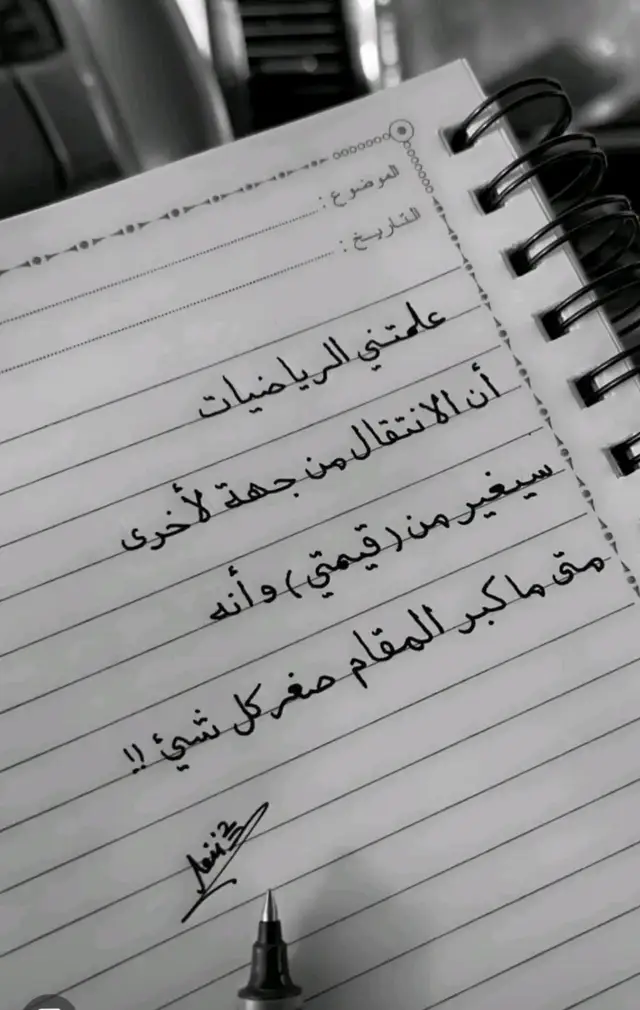 الموضوع :
التاريخ :
علمتني الرياضيات
أن الانتقال من جهة لأخرى
سيغير من (قيمتي) وأنه
متى ما كبر المقام صغر كل شيئ !!